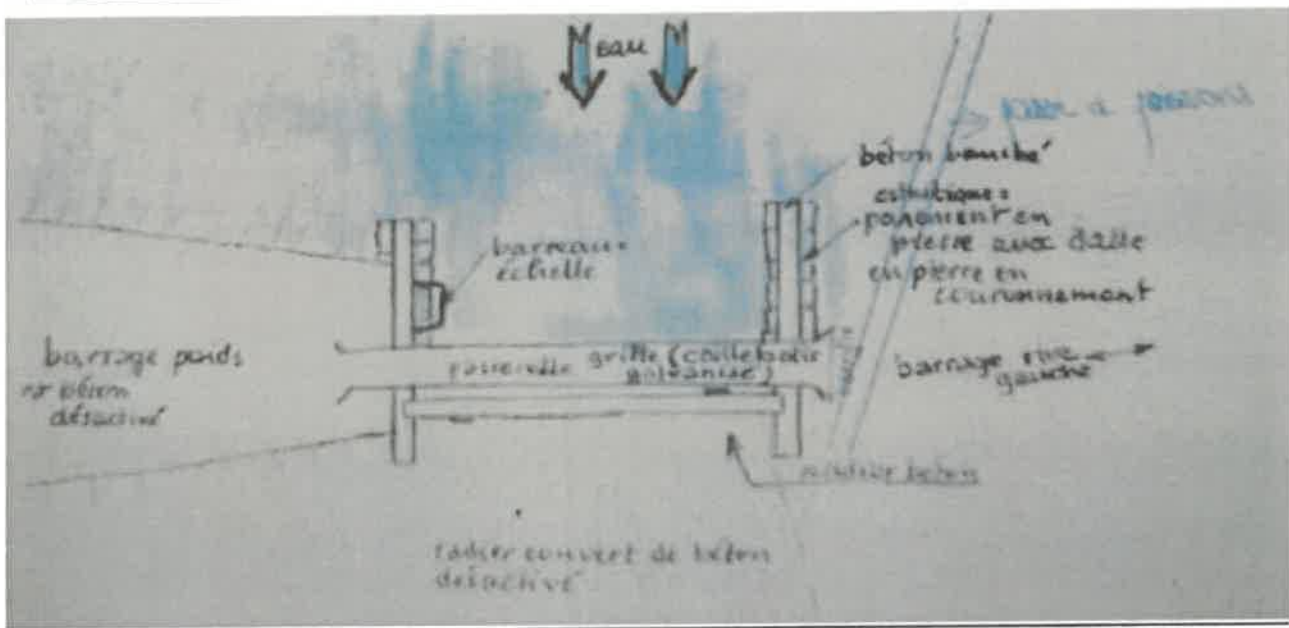 eau
à
béton banché
esthétique =
parement en
pierre avec dalle
en pierre en
couronnement
barreau=
échelle
barrage poids
béton
désactivé
passerelle grille (caillebotis
galvanisé)
barrage rive
gauche
béton
radier couvert de béton
désactivé